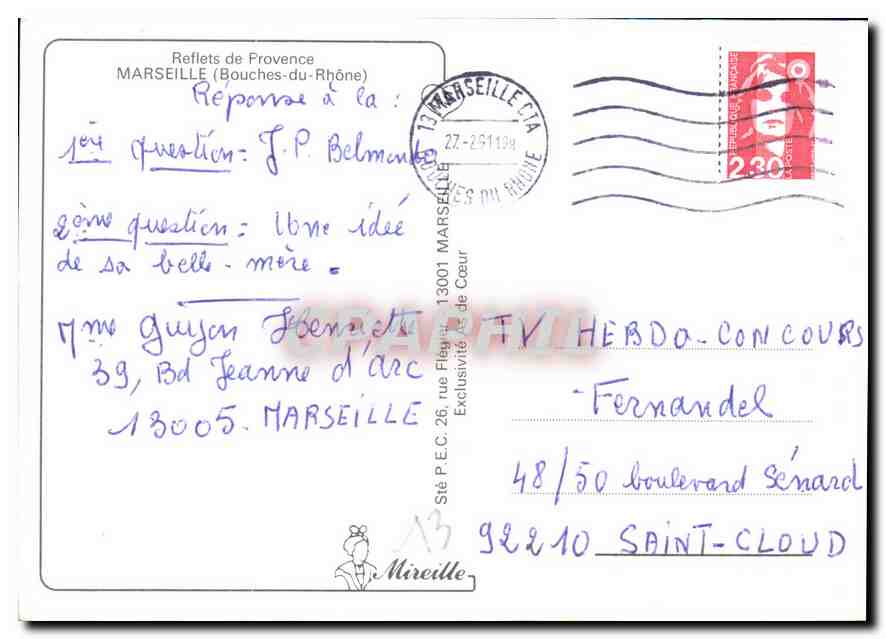 Reflets de Provence
MARSEILLE (Bouches-du-Rhône)
Réponse à la :
1ère question = J. P. Belmondo
2ème question = Une idée
de sa belle-mère.
Mme Guyon Henriette
39, Bd Jeanne d'Arc
13005. MARSEILLE
13
Mireille
Sté P.E.C. 26, rue Flégier, 13001 MARSEILLE
Exclusivité As de Cœur
13 MARSEILLE CTA
BOUCHES DU RHONE
RÉPUBLIQUE FRANÇAISE
2,30
LA POSTE
TV HEBDO-CONCOURS
Fernandel
48/50 boulevard Sénard
92210 SAINT-CLOUD
CPAPHIL